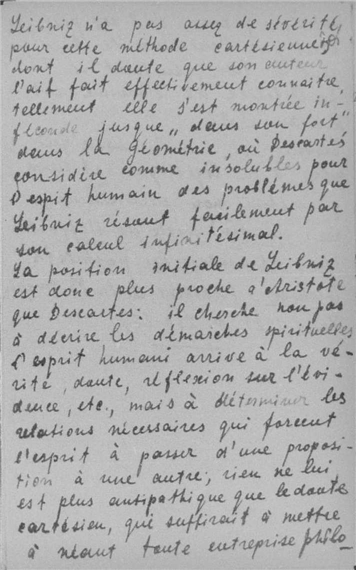 Leibniz n'a pas assez de sévérité
pour cette méthode cartésienne
dont il doute que son auteur
l'ait fait effectivement connaître,
tellement elle s'est montrée in-
féconde jusque „dans son fort"
dans la géométrie, où Descartes
considère comme insolubles pour
l'espit humain des problèmes que
Leibniz résout facilement par
son calcul infinitésimal.
La position initiale de Leibniz
est donc plus proche d'Aristote
que Descartes: il cherche non pas
à décrire les démarches spirituelles
l'esprit humain arrive à la vé-
rité, doute, réflexion sur l'évi-
dence, etc., mais à déterminer les
relations nécessaires qui forcent
l'esprit à passer d'une proposi-
tion à une autre; rien ne lui
est plus antipathique que le doute
cartésien, qui suffirait à mettre
à néant toute entreprise philo-